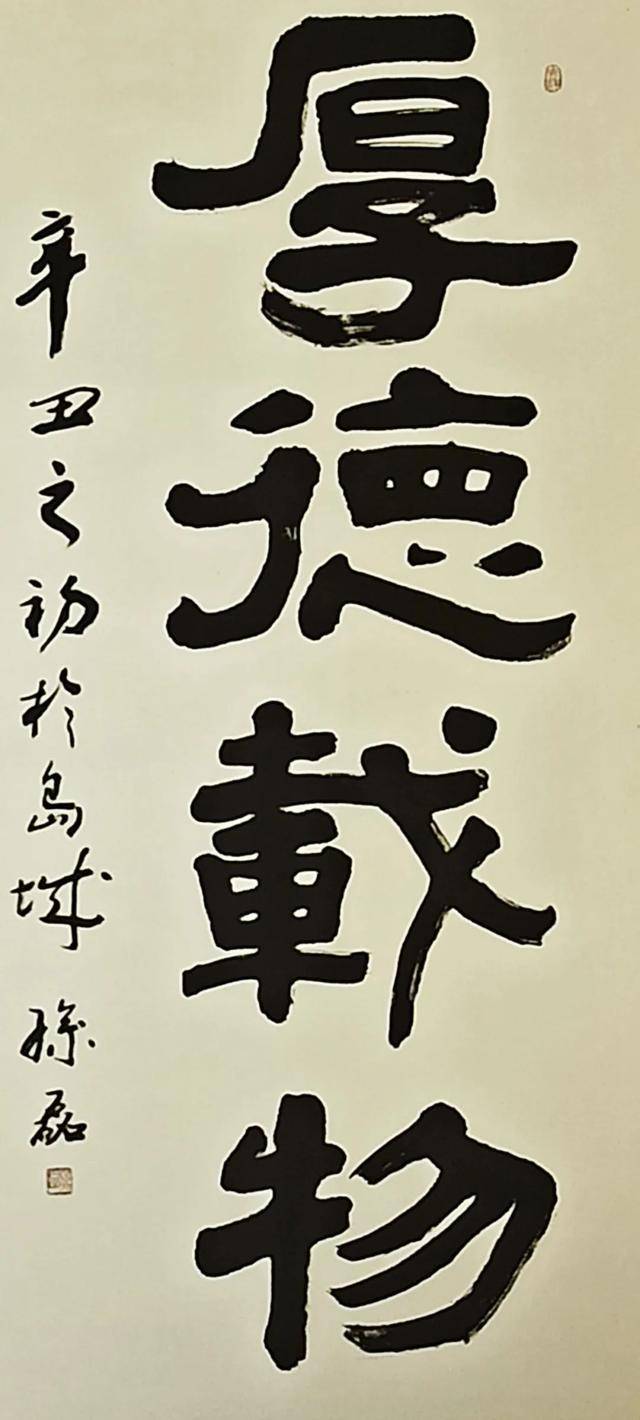 厚德載物
辛丑之初於島城 孫磊